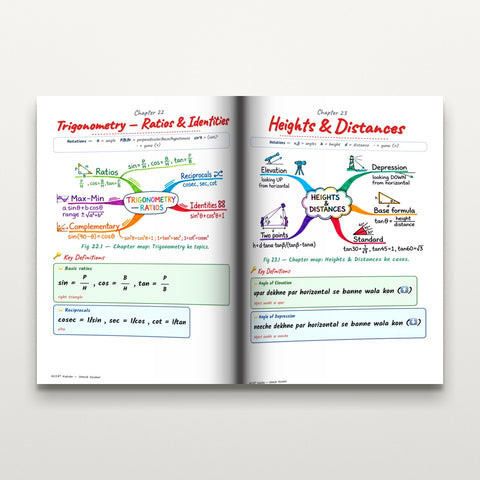 Chapter 22
Trigonometry — Ratios & Identities
Notations — θ = angle P/B/H = perpendicular/base/hypotenuse
Ratios
sin=P/H, cos=B/H, tan=P/B
sin=P/H, cos=B/H, tan=P/B
Reciprocals
cosec, sec, cot
Max-Min
a sinθ+b cosθ
range ±√a²+b²
TRIGONOMETRY
— RATIOS
Identities
sin²θ+cos²θ=1
Complementary
sin(90-θ)=cosθ
sin²θ+cos²θ=1; 1+tan²=sec²; 1+cot²=cosec²
Fig 22.1 — Chapter map: Trigonometry ke topics.
Key Definitions
Basic ratios
sin = P/H, cos = B/H, tan = P/B
right triangle
Reciprocals
cosec = 1/sin, sec = 1/cos, cot = 1/tan
Chapter 23
Heights & Distances
Notations — α,β = angles h = height d = distance
Elevation
looking UP
from horizontal
Depression
looking DOWN
from horizontal
HEIGHTS
&
DISTANCES
Base formula
tanθ = height/distance
Two points
h=d·tanα·tanβ/(tanβ-tanα)
Standard
tan30=1/√3, tan45=1, tan60=√3
Fig 23.1 — Chapter map: Heights & Distances ke cases.
Key Definitions
Angle of Elevation
upar dekhne par horizontal se banne wala kon
object neeche se upar
Angle of Depression
neeche dekhne par horizontal se banne wala kon
object upar se neeche